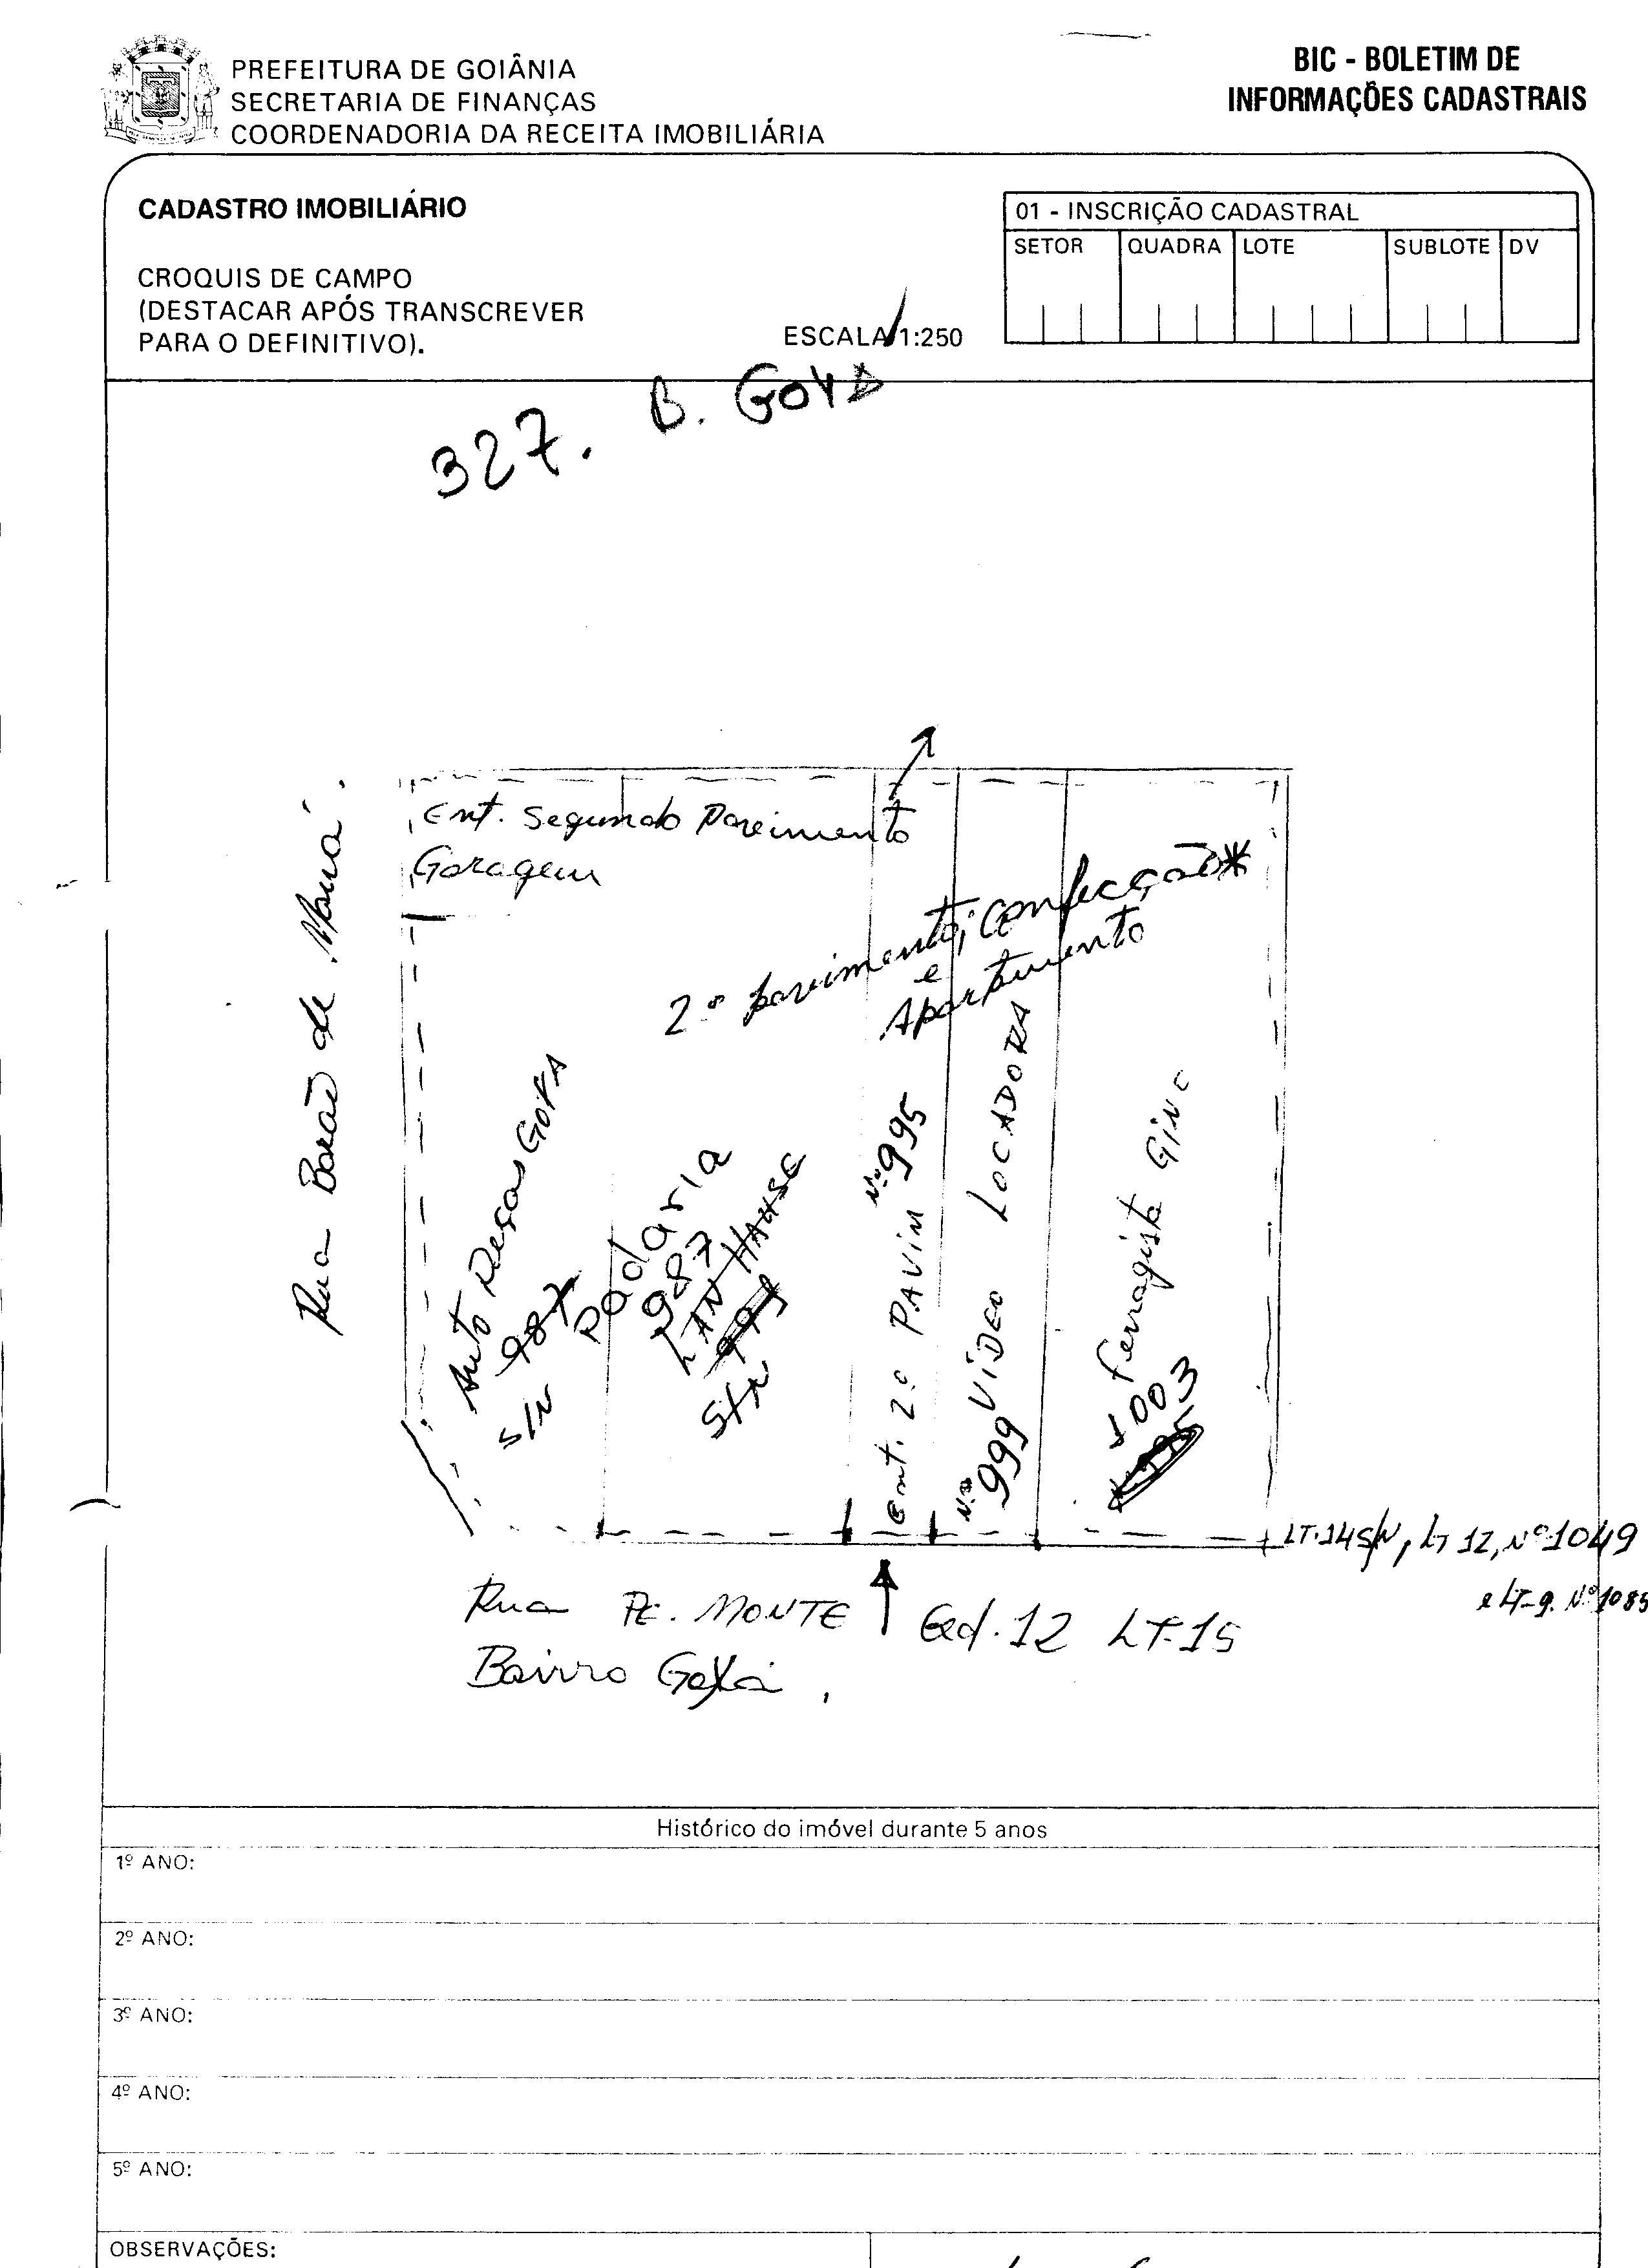 PREFEITURA DE GOIÂNIA
SECRETARIA DE FINANÇAS
COORDENADORIA DA RECEITA IMOBILIÁRIA
BIC - BOLETIM DE
INFORMAÇÕES CADASTRAIS
CADASTRO IMOBILIÁRIO
CROQUIS DE CAMPO
(DESTACAR APÓS TRANSCREVER
PARA O DEFINITIVO).
ESCALA 1:250
01 - INSCRIÇÃO CADASTRAL
SETOR QUADRA LOTE SUBLOTE DV
327. B. GOYA
Rua Barão de Mauá.
Ent. Segundo Paveimento
Garagem
2º pavimento, confecção*
e
Apartamento
Auto Peças GOYA
987
S/N
Padaria
987
LAN HAUSE
S/N
Nº 995
Ent. 2º PAVIM
Nº 999 VIDEO LOCADORA
Ferragista
1003
LT.14 S/N, LT 12, Nº 1049
e LT-9. Nº 1085
Rua PE. MONTE
Qd. 12 LT-15
Bairro Goyá.
Histórico do imóvel durante 5 anos
1º ANO:
2º ANO:
3º ANO:
4º ANO:
5º ANO:
OBSERVAÇÕES: